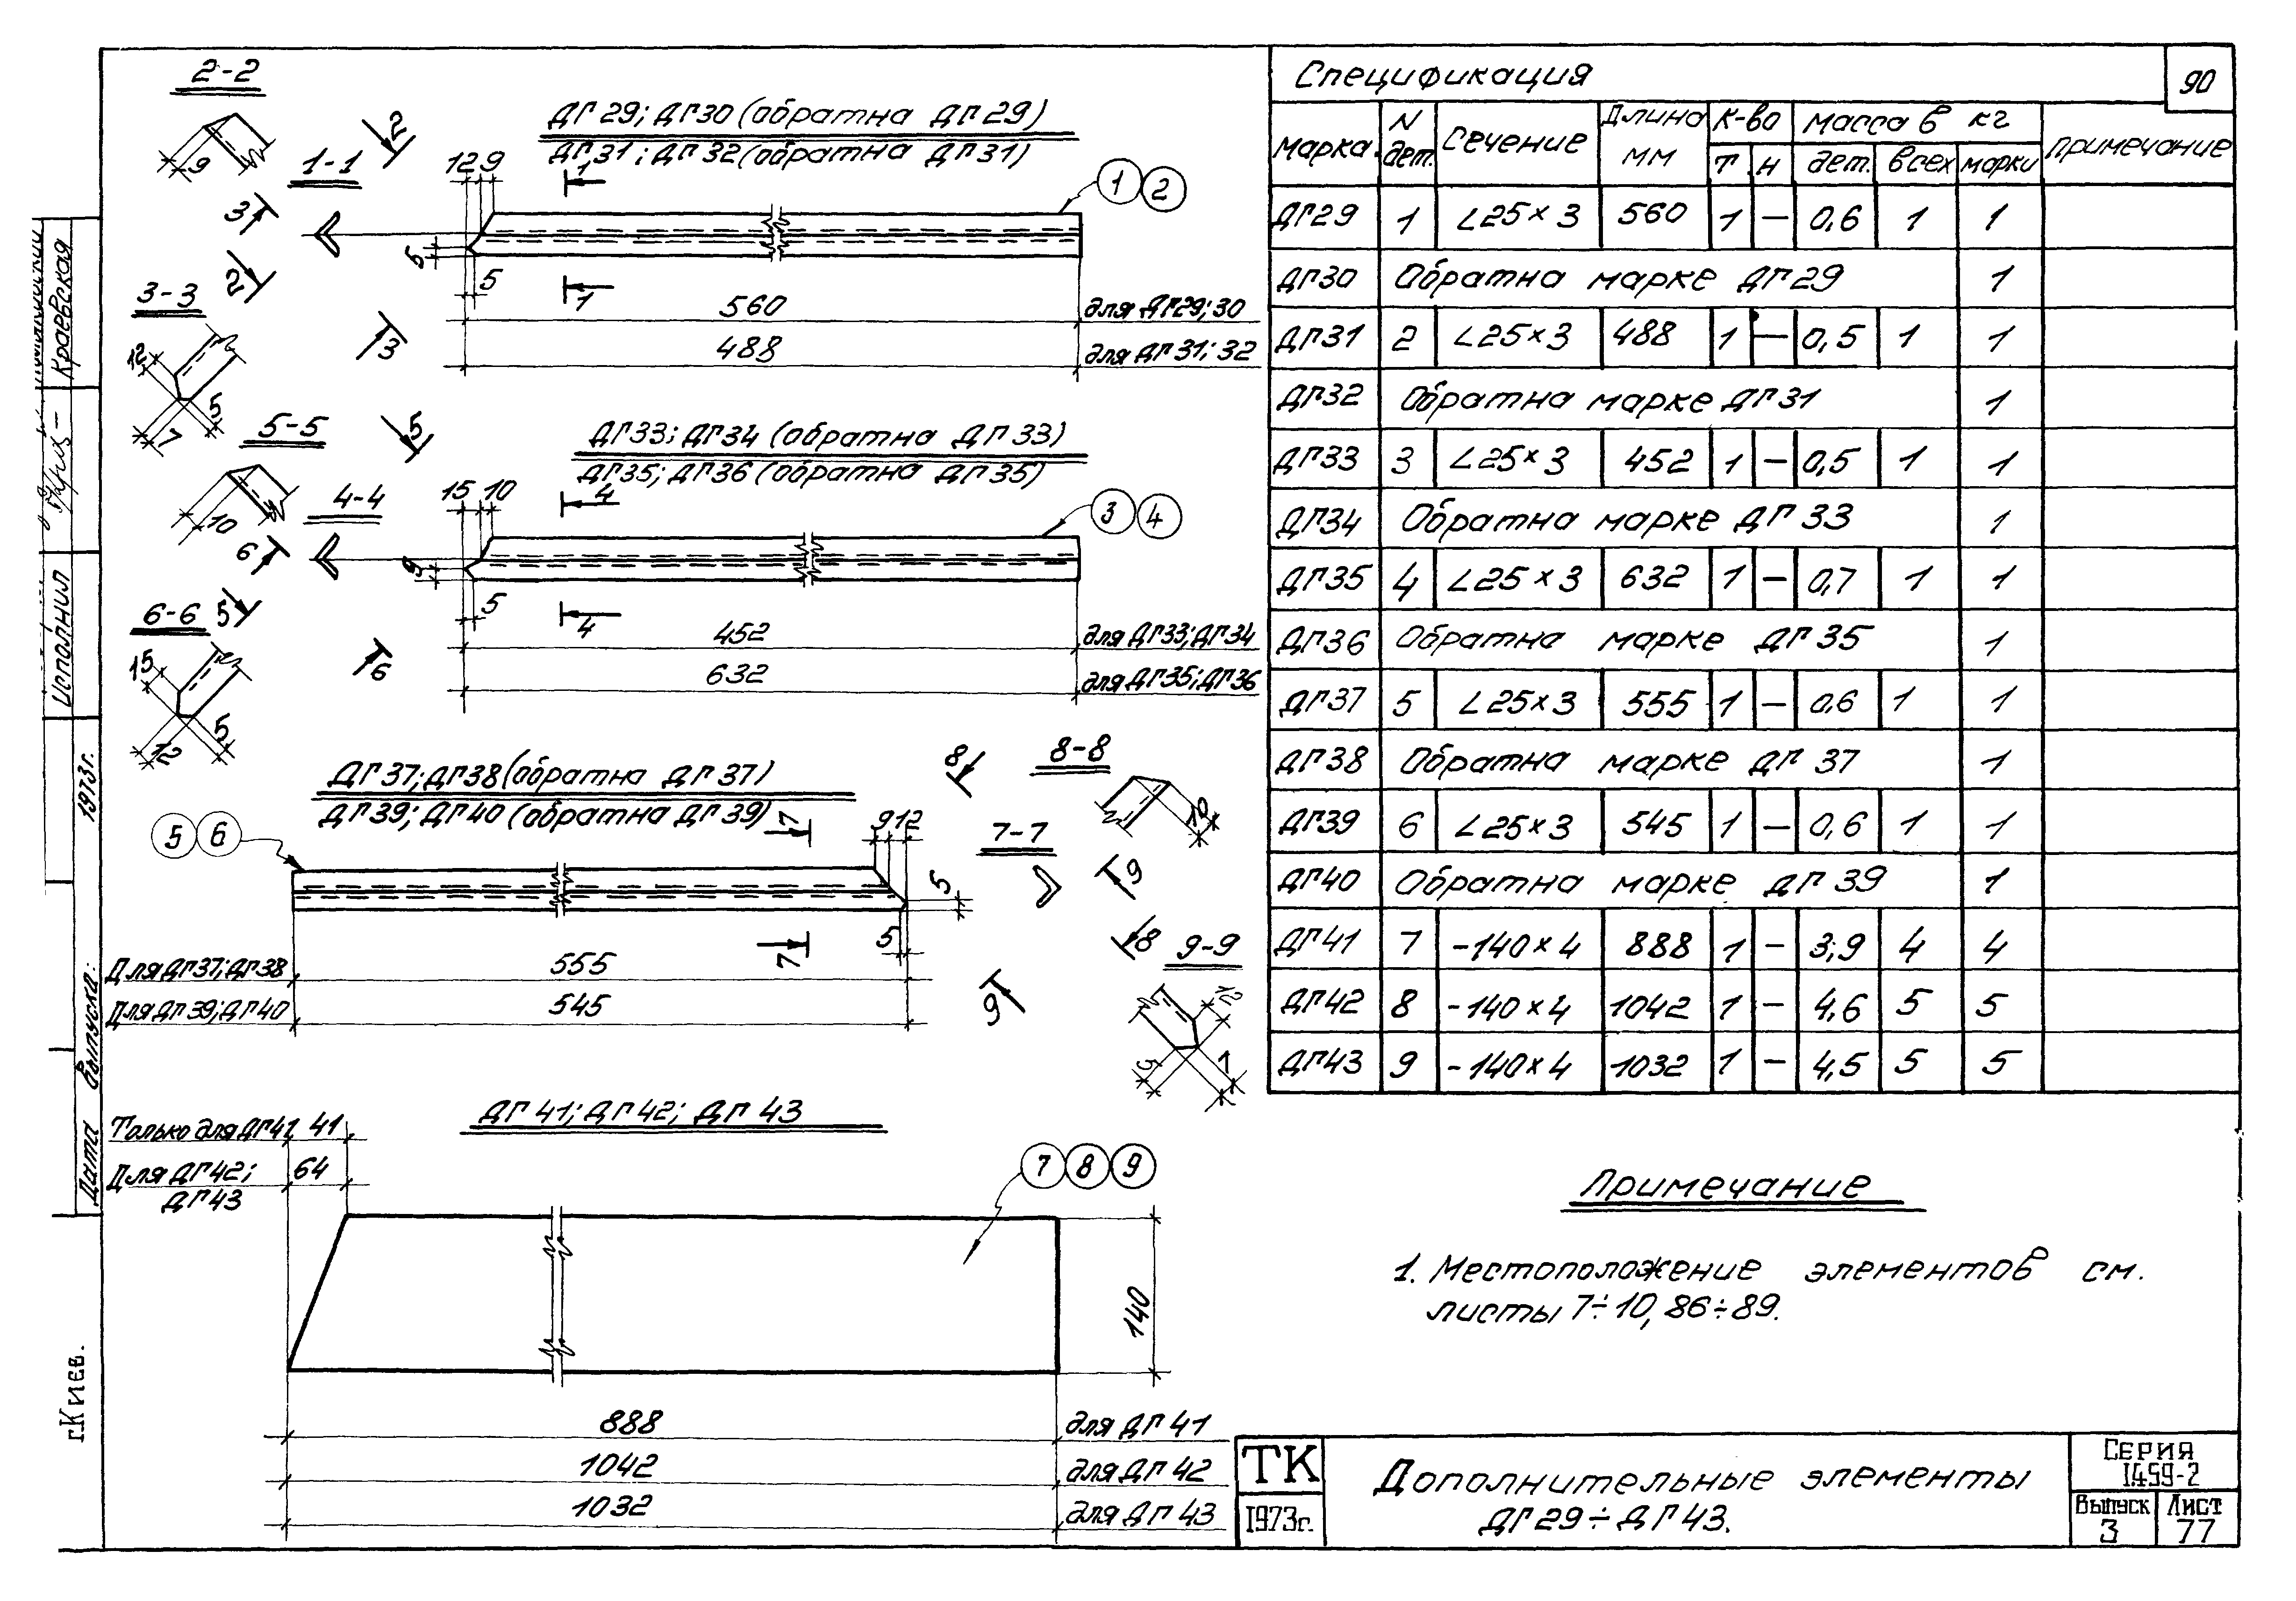 2-2
ДГ29; ДГ30 (обратна ДГ29)
ДГ31; ДГ32 (обратна ДГ31)
1-1
2
9
12 9
1
1 2
3
2
6
5
1
3-3
560 для ДГ29; 30
488 для ДГ31; 32
3
12
5
7
5-5
5
ДГ33; ДГ34 (обратна ДГ33)
ДГ35; ДГ36 (обратна ДГ35)
4-4
10
15 10
4
3 4
6
5
5
4
6-6
6
452 для ДГ33; ДГ34
632 для ДГ35; ДГ36
15
5
12
ДГ37; ДГ38 (обратна ДГ37)
ДГ39; ДГ40 (обратна ДГ39)
8
8-8
7
5 6
9 12
7-7
10
5
9
5
7
8
9-9
Для ДГ37; ДГ38 555
Для ДГ39; ДГ40 545
9
12
5
7
ДГ41; ДГ42; ДГ43
Только для ДГ41 41
Для ДГ42; 64
ДГ43
7 8 9
140
888 для ДГ41
1042 для ДГ42
1032 для ДГ43
Спецификация
90
Марка N дет. Сечение Длина мм К-во Масса в кг Примечание
т н дет. всех марки
ДГ29 1 ∠25×3 560 1 — 0,6 1 1
ДГ30 Обратна марке ДГ29 1
ДГ31 2 ∠25×3 488 1 — 0,5 1 1
ДГ32 Обратна марке ДГ31 1
ДГ33 3 ∠25×3 452 1 — 0,5 1 1
ДГ34 Обратна марке ДГ33 1
ДГ35 4 ∠25×3 632 1 — 0,7 1 1
ДГ36 Обратна марке ДГ35 1
ДГ37 5 ∠25×3 555 1 — 0,6 1 1
ДГ38 Обратна марке ДГ37 1
ДГ39 6 ∠25×3 545 1 — 0,6 1 1
ДГ40 Обратна марке ДГ39 1
ДГ41 7 -140×4 888 1 — 3,9 4 4
ДГ42 8 -140×4 1042 1 — 4,6 5 5
ДГ43 9 -140×4 1032 1 — 4,5 5 5
Примечание
1. Местоположение элементов см.
листы 7÷10, 86÷89.
ТК
1973г.
Дополнительные элементы
ДГ29÷ДГ43.
Серия
1.459-2
Выпуск Лист
3 77
Краевская
Исполнил
1973г.
Дата выпуска:
г.Киев.